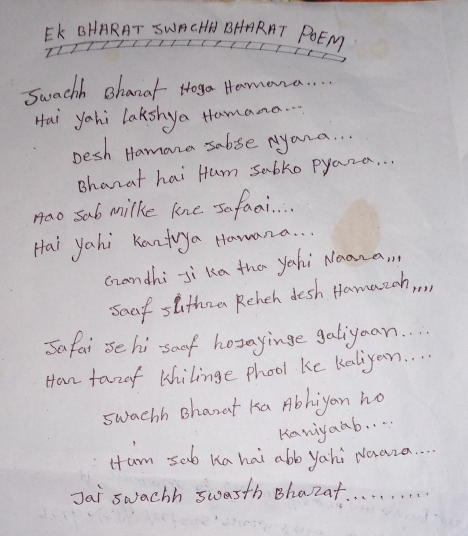 EK BHARAT SWACHH BHARAT POEM
Swachh Bharat Hoga Hamara....
Hai Yahi Lakshya Hamara...
Desh Hamara Sabse Nyara...
Bharat hai Hum Sabko Pyara...
Aao Sab Milke Kre Safaai....
Hai Yahi Kartvya Hamara...
Gandhi Ji Ka tha Yahi Naara,,,
Saaf Suthra Reheh desh Hamarah,,,,
Safai se hi saaf hojayinge galiyaan....
Har taraf Khilinge Phool Ke Kaliyan....
Swachh Bharat Ka Abhiyan ho
Kamiyaab....
Hum Sab Ka hai abb Yahi Naara....
Jai Swachh Swasth Bharat..........